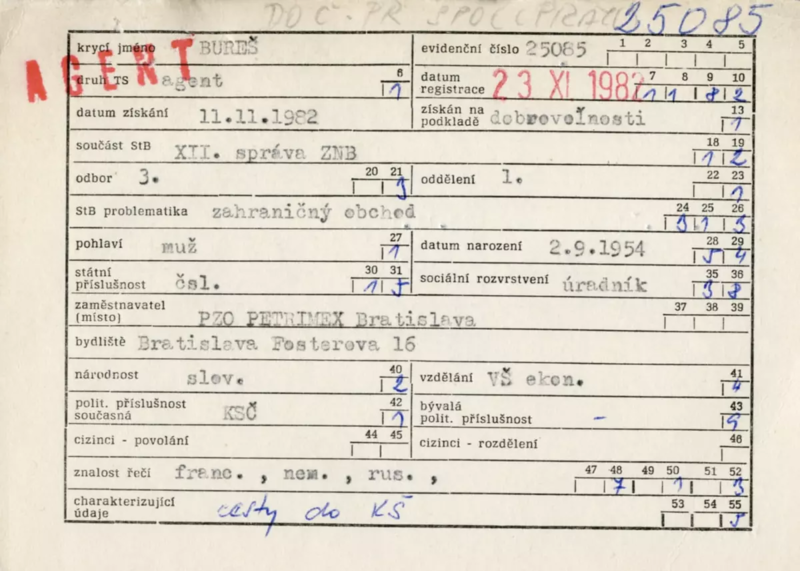 DOČ. PR SPOLUPRÁCI 25085
AGENT
krycí jméno BUREŠ evidenční číslo 25085 1 2 3 4 5
druh TS agent 6 1 datum registrace 23 XI 1982 7 8 9 10 1 1 8 2
datum získání 11.11.1982 získán na podkladě dobrovoľnosti 13 1
součást StB XII. správa ZNB 18 19 1 2
odbor 3. 20 21 3 oddělení 1. 22 23 1
StB problematika zahraničný obchod 24 25 26 3 1 3
pohlaví muž 27 1 datum narození 2.9.1954 28 29 5 4
státní příslušnost čsl. 30 31 1 5 sociální rozvrstvení úradník 35 36 3 8
zaměstnavatel (místo) PZO PETRIMEX Bratislava 37 38 39
bydliště Bratislava Fosterova 16
národnost slov. 40 2 vzdělání VŠ ekon. 41 4
polit. příslušnost současná KSČ 42 1 bývalá polit. příslušnost - 43 9
cizinci - povolání 44 45 cizinci - rozdělení 46
znalost řečí franc. , nem. , rus. , 47 48 49 50 51 52 7 1 3
charakterizující údaje cesty do KŠ 53 54 55 5